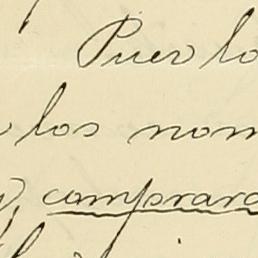 Pues lo
los nom
comprara